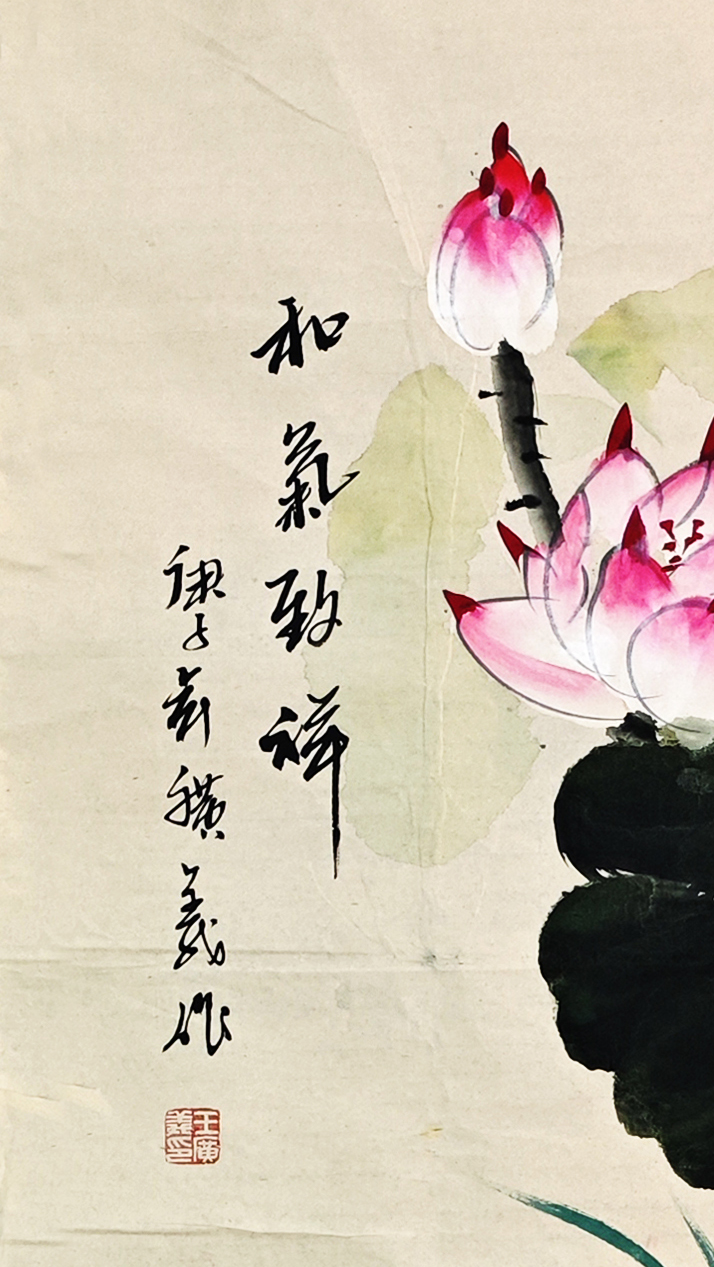 和氣致祥
庚子年广義作
王廣義印